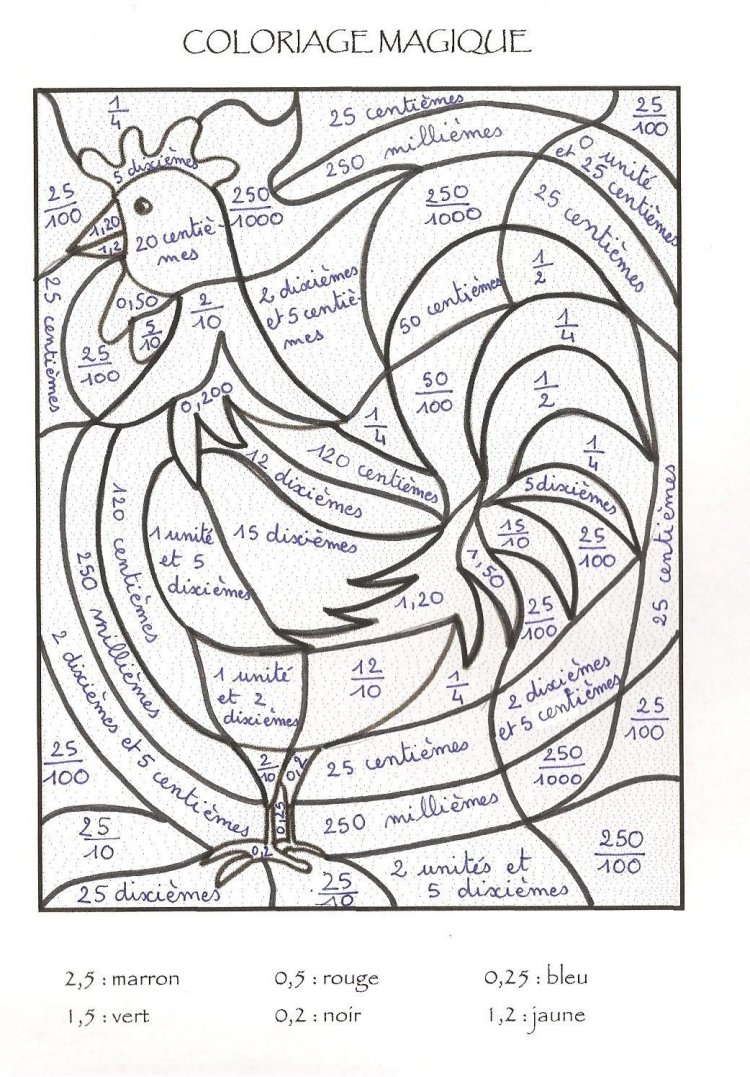 COLORIAGE MAGIQUE
1/4
25 centièmes
25/100
250 millièmes
0 unité
et 25 centièmes
5 dixièmes
25/100
250/1000
250/1000
25 centièmes
1,20
1,2
20 centiè-
mes
1/2
25 centièmes
0,50
2/10
2 dixièmes
et 5 centiè-
mes
50 centièmes
5/10
1/4
25/100
50/100
1/2
0,200
1/4
120 centièmes
1/4
12 dixièmes
5 dixièmes
120 centièmes
1 unité
et 5
dixièmes
15 dixièmes
15/10
25/100
25 centièmes
250 millièmes
1,50
1,20
25/100
2 dixièmes et 5 centièmes
1 unité
et 2
dixièmes
12/10
1/4
2 dixièmes
et 5 centièmes
25/100
25/100
2/10
0,2
25 centièmes
250/1000
25/10
0,25
250 millièmes
250/100
0,2
25 dixièmes
25/10
2 unités et
5 dixièmes
2,5 : marron
0,5 : rouge
0,25 : bleu
1,5 : vert
0,2 : noir
1,2 : jaune